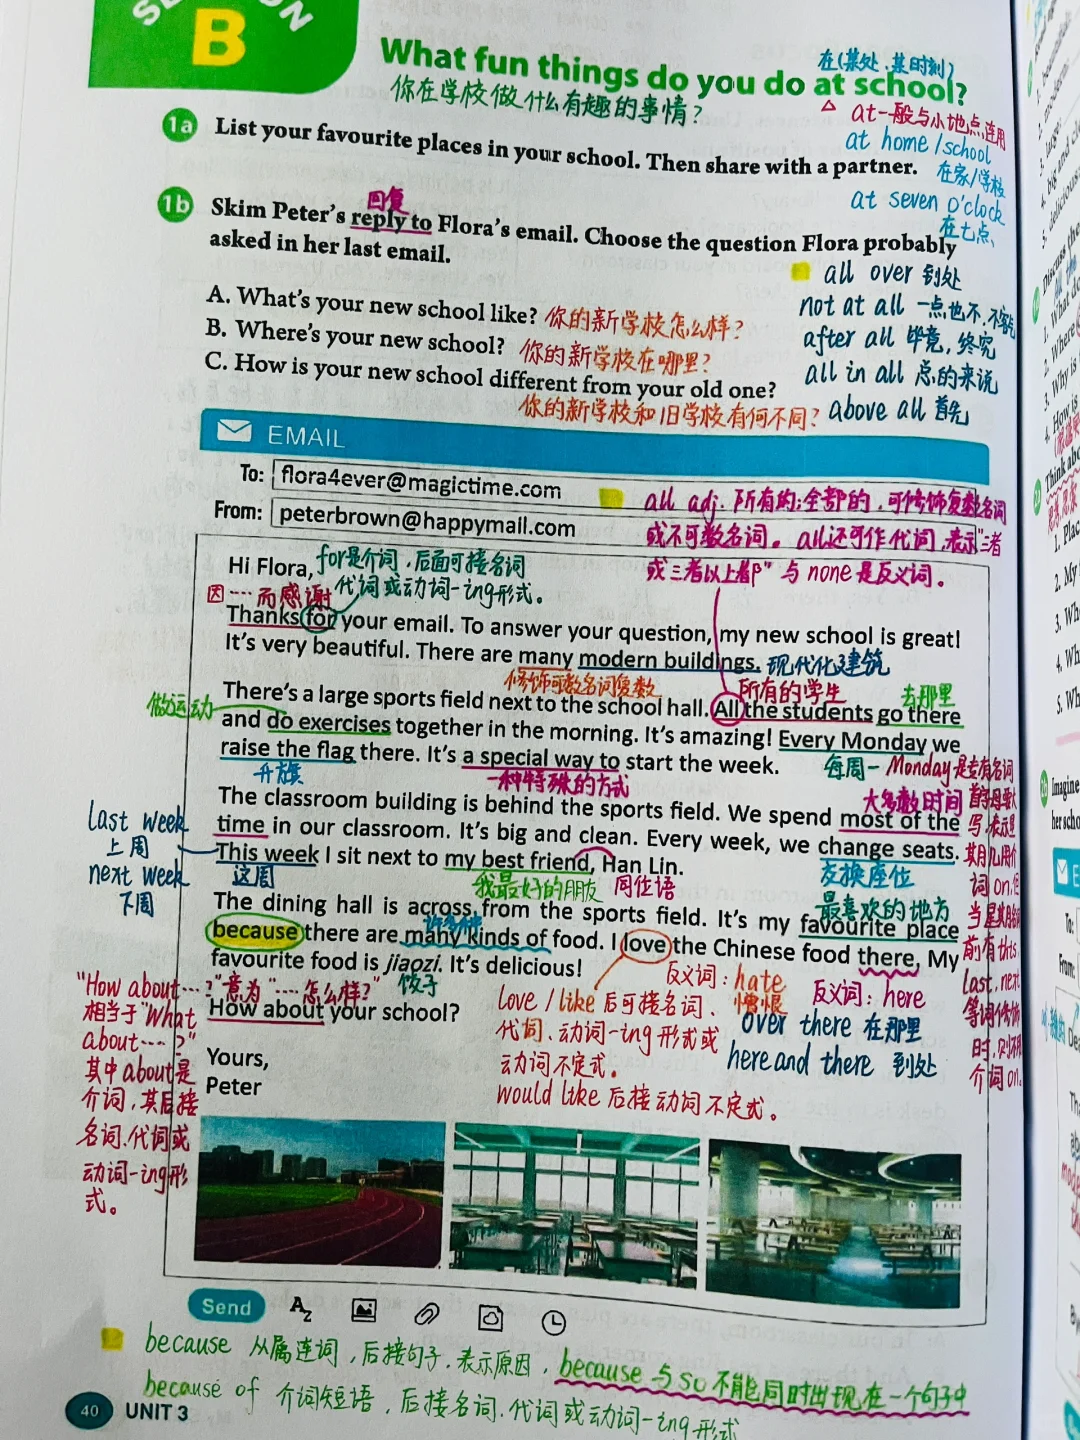 SECTION
B
What fun things do you do at school?
在(某处、某时刻)
你在学校做什么有趣的事情?
△ at一般与小地点连用
1a List your favourite places in your school. Then share with a partner.
at home / school
在家/学校
at seven o'clock
在七点
回复
1b Skim Peter's reply to Flora's email. Choose the question Flora probably
asked in her last email.
all over 到处
not at all 一点也不,不客气
after all 毕竟,终究
all in all 总的来说
above all 首先
A. What's your new school like? 你的新学校怎么样?
B. Where's your new school? 你的新学校在哪里?
C. How is your new school different from your old one?
你的新学校和旧学校有何不同?
EMAIL
To: flora4ever@magictime.com
From: peterbrown@happymail.com
all adj. 所有的;全部的,可修饰复数名词
或不可数名词。all还可作代词,表示"三者
或三者以上都" 与 none 是反义词。
Hi Flora,
for是介词,后面可接名词
代词或动词-ing形式。
因……而感谢
Thanks for your email. To answer your question, my new school is great!
It's very beautiful. There are many modern buildings.
现代化建筑
修饰可数名词复数
所有的学生
去那里
做运动
There's a large sports field next to the school hall. All the students go there
and do exercises together in the morning. It's amazing! Every Monday we
raise the flag there. It's a special way to start the week.
升旗
一种特殊的方式
每周一 Monday是专有名词
首字母要大
写,表示星
期几用介
词on,但
当星期前
前有this
last, next
等词修饰
时,则不用
介词on.
大多数时间
The classroom building is behind the sports field. We spend most of the
time in our classroom. It's big and clean. Every week, we change seats.
This week I sit next to my best friend, Han Lin.
last week
上周
next week
下周
这周
我最好的朋友
同位语
交换座位
最喜欢的地方
The dining hall is across from the sports field. It's my favourite place
许多种
because there are many kinds of food. I love the Chinese food there. My
favourite food is jiaozi. It's delicious!
饺子
"How about……?"意为"……怎么样?"
相当于"What
about……?"
其中about是
介词,其后接
名词、代词或
动词-ing形
式。
How about your school?
Yours,
Peter
love / like 后可接名词、
代词、动词-ing 形式或
动词不定式。
would like 后接动词不定式。
反义词: hate
憎恨
反义词: here
over there 在那里
here and there 到处
Send
because 从属连词,后接句子,表示原因,because 与 so 不能同时出现在一个句子中
because of 介词短语,后接名词、代词或动词-ing形式
40 UNIT 3